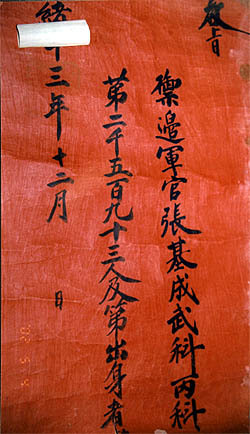 敎旨
禦邊軍官張基成武科丙科
第二千五百九十三人及第出身者
緖十三年十二月 日